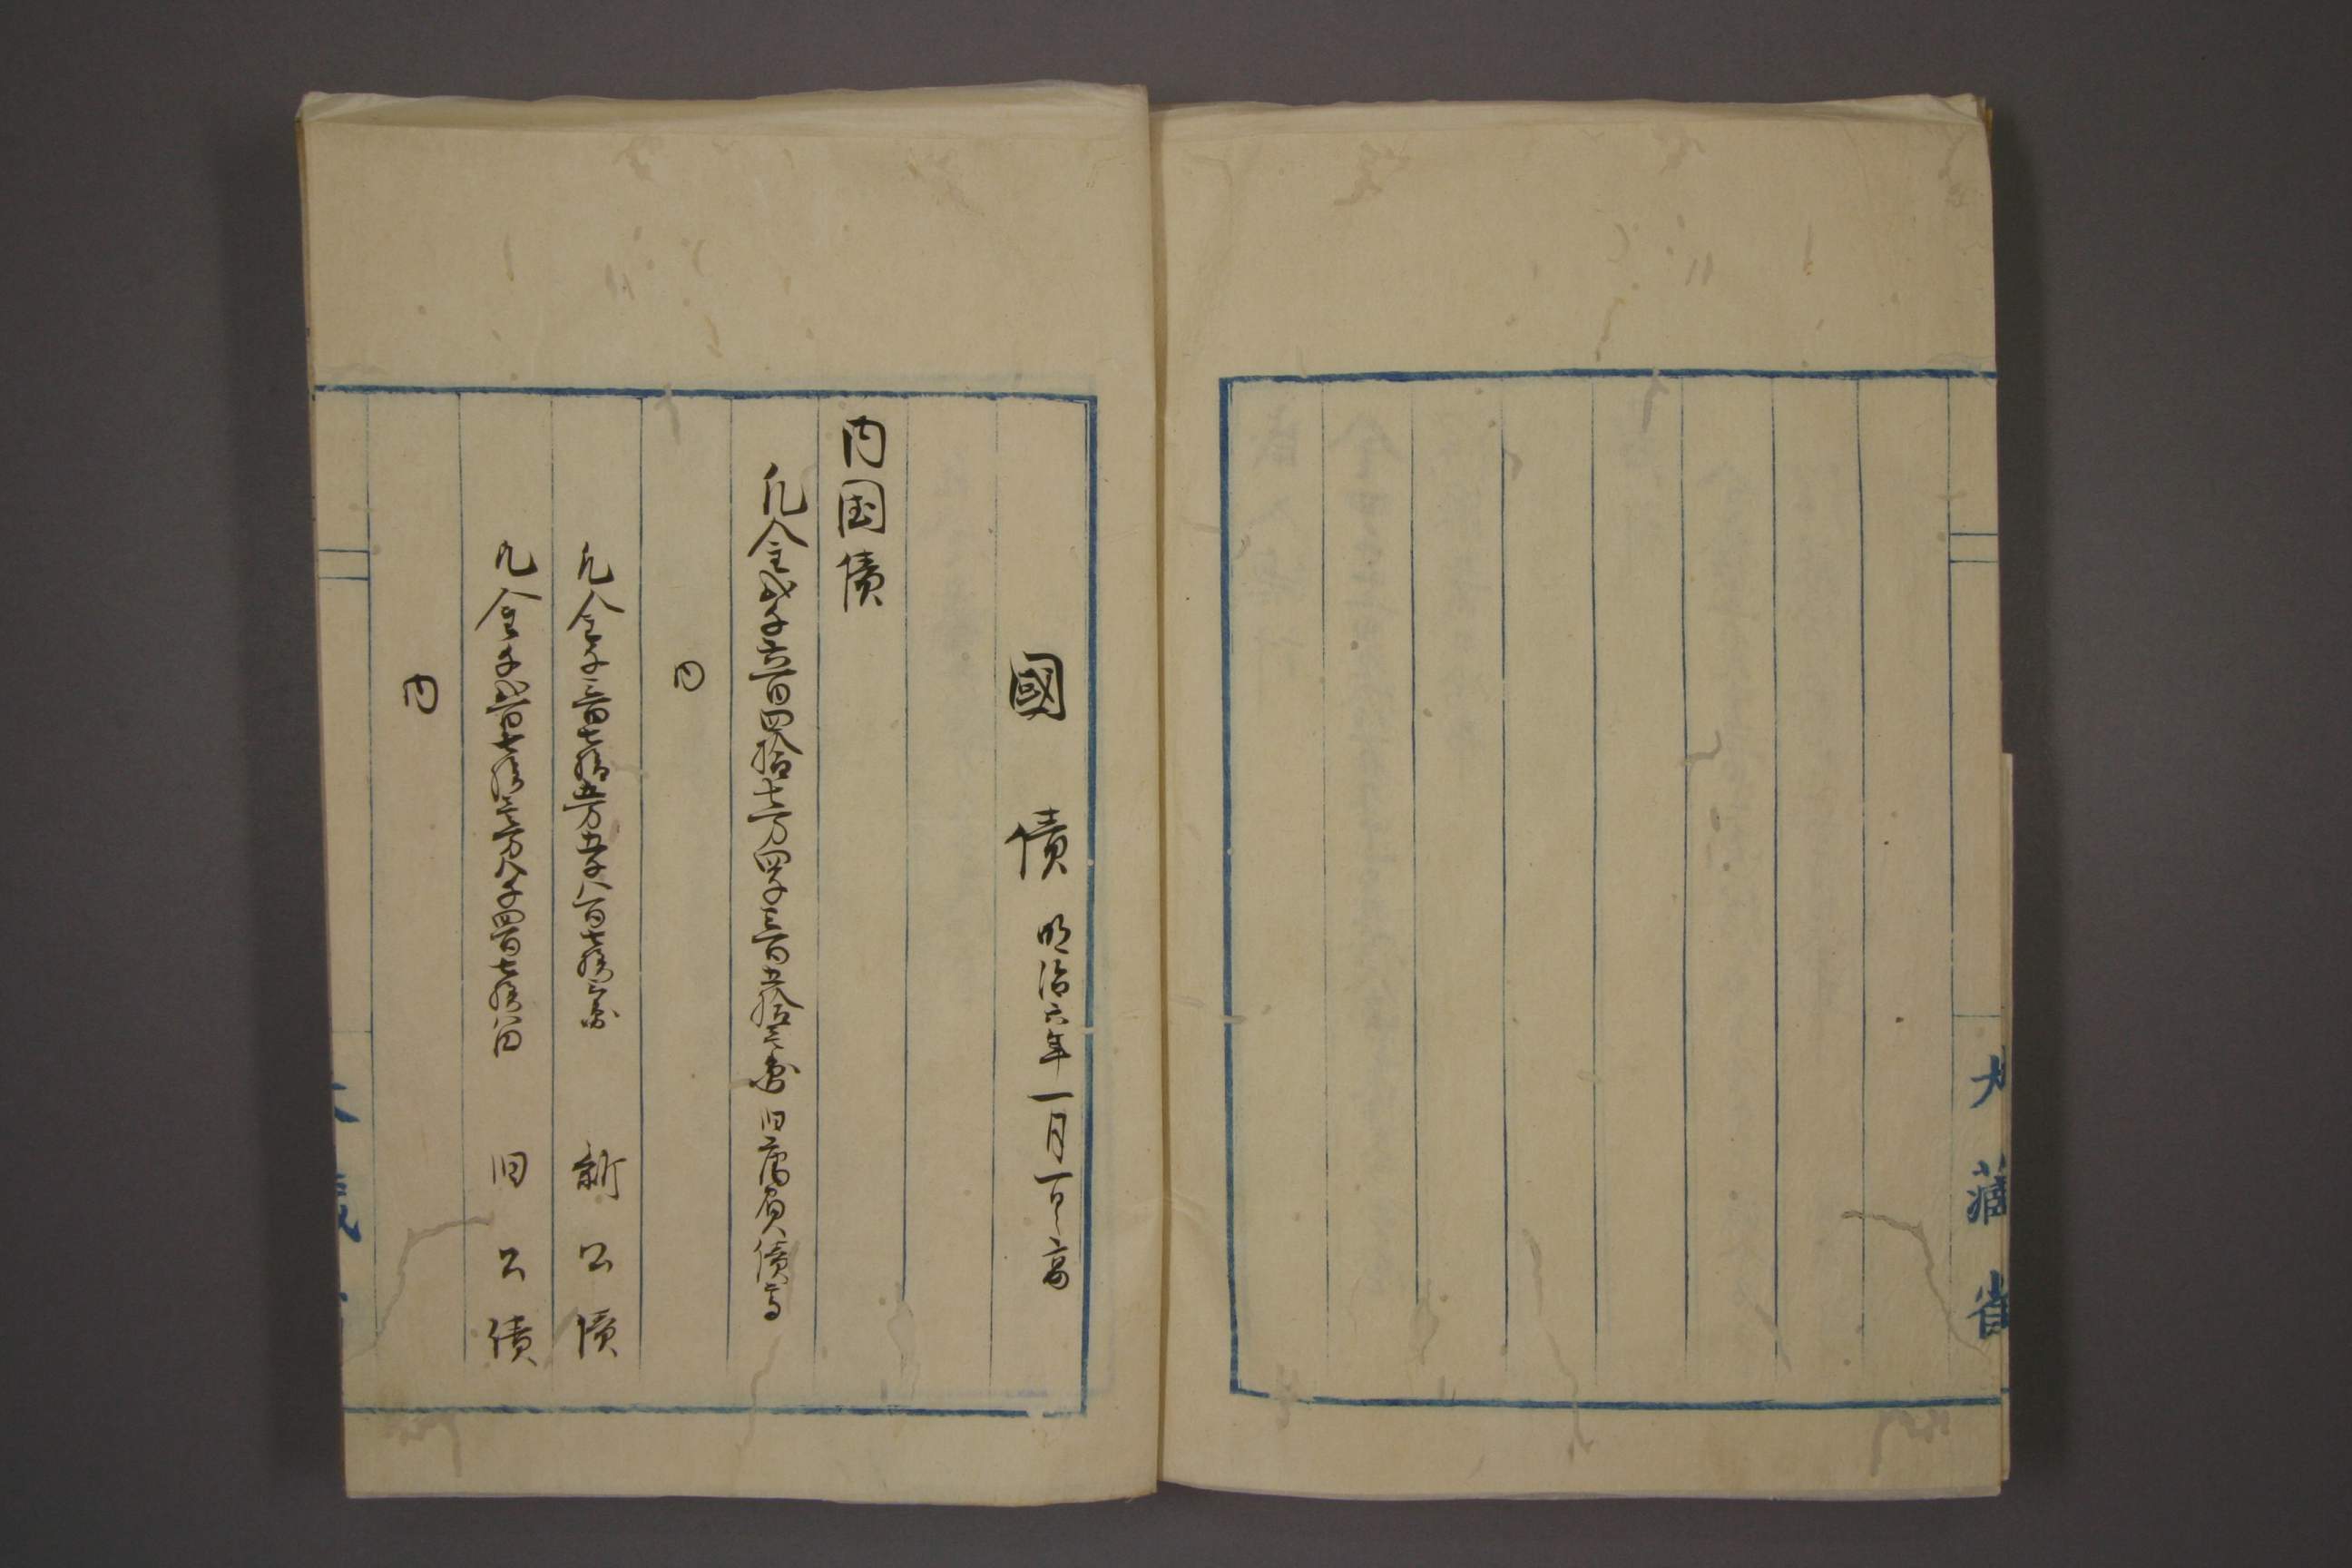 大藏省
國債 明治六年一月一日ノ高
内国債
凡金弐千六百四拾七万四千三百五拾三圓 旧藩負債高
内
凡金千三百七拾五万五千八百七拾五圓 新公債
凡金千弐百七拾壱万八千四百七拾八円 旧公債
内